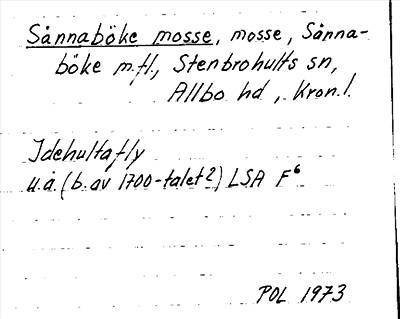 Sånnaböke mosse, mosse, Sånna-
böke m.fl., Stenbrohults sn,
Allbo hd, Kron. l.
Idehultafly
u.å. (b. av 1700-talet?) LSA F⁶
POL 1973